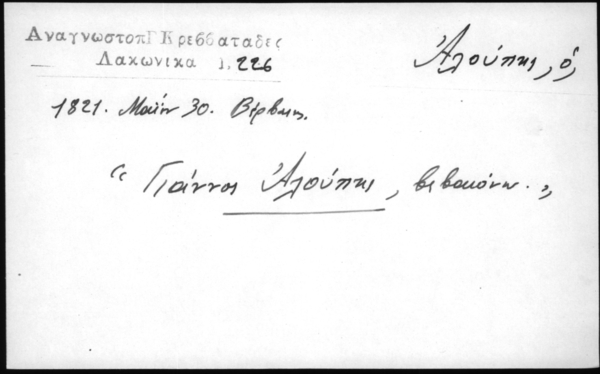 Αναγνωστοπ Γ Κρεββαταδες
Λακωνικα 1. 226
Ἀλούπης, ὁ,
1821. Μαΐου 30. Βέρβαινα.
"Γιάννος Ἀλούπης, βεβαιώνω."